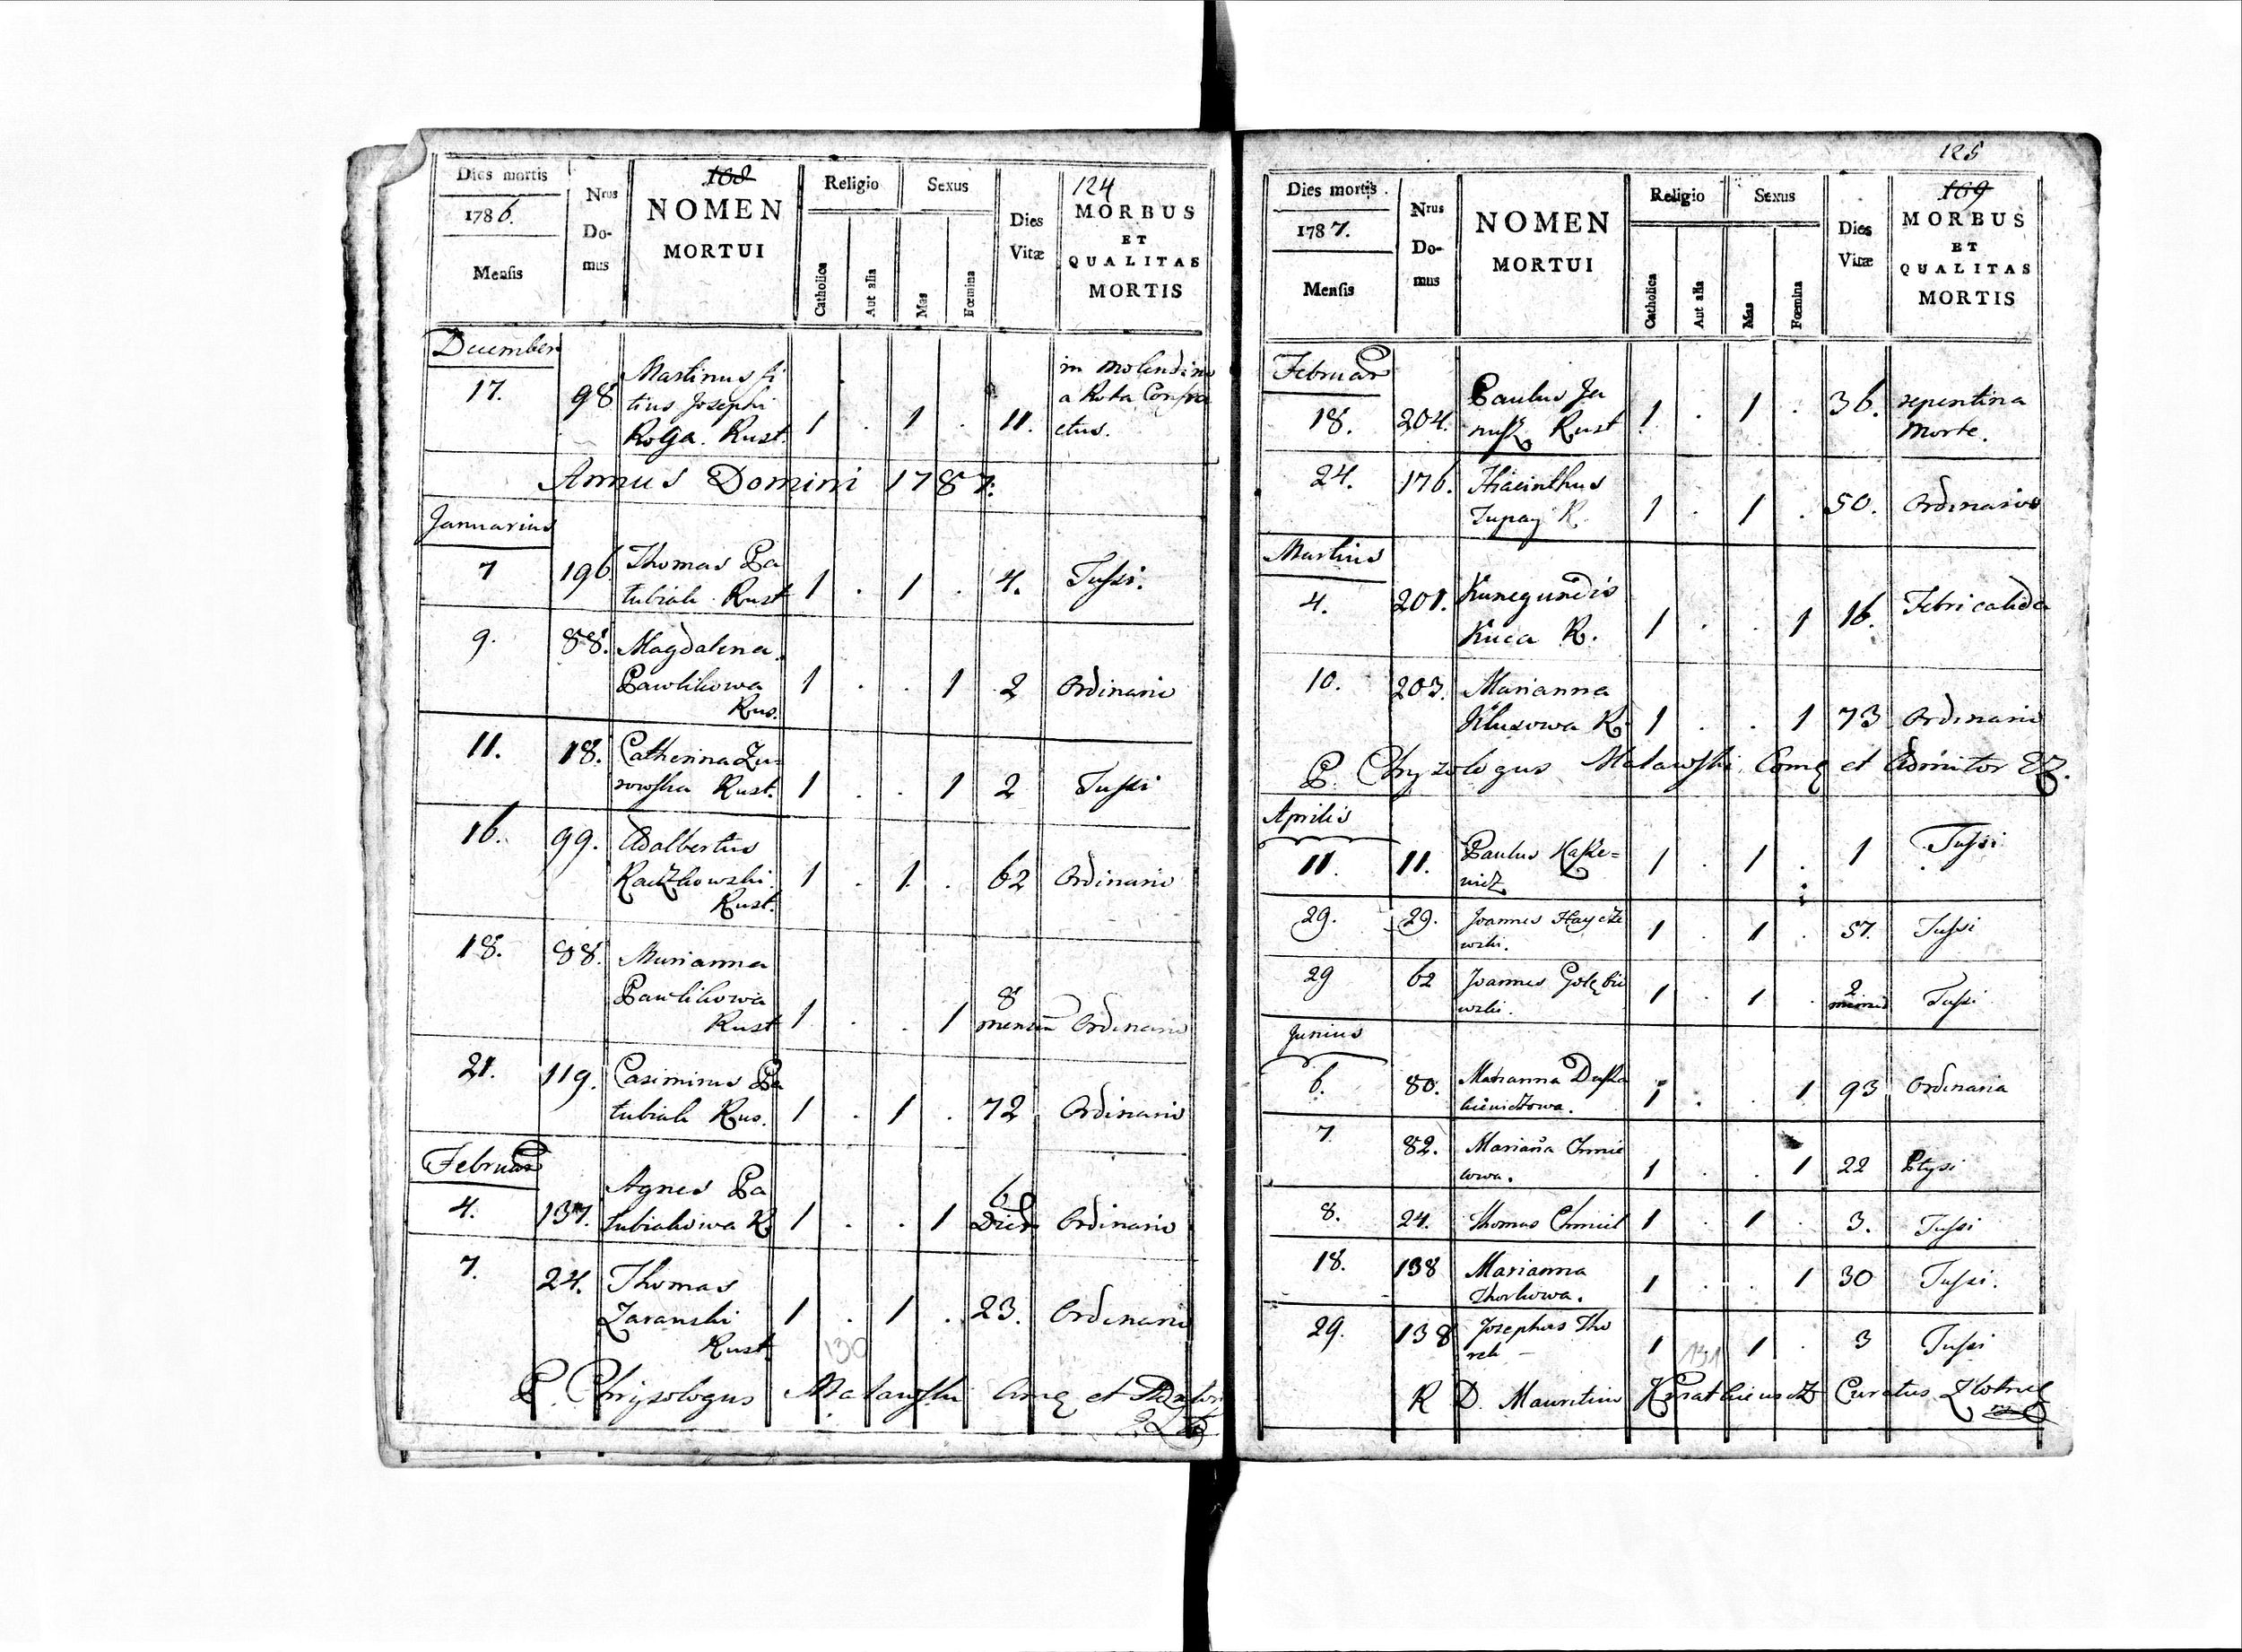 108
124
Dies mortis
1786.
Mensis
Nrus
Do-
mus
NOMEN
MORTUI
Religio
Catholica
Aut alia
Sexus
Mas
Fœmina
Dies
Vitæ
MORBUS
ET
QUALITAS
MORTIS
December
17. 98 Martinus fi
lius Josephi
Roga. Rust. 1 . 1 . 11. in molendino
a Rota Confra
ctus.
Annus Domini 1787.
Januarius
7 196 Thomas Pa
tubiak Rust 1 . 1 . 4. Tussi.
9. 88. Magdalena
Pawlikowa
Rus. 1 . . 1 2 Ordinario
11. 18. Catherina Zu
rowska Rust. 1 . . 1 2 Tussi
16. 99. Adalbertus
Raczkowski
Rust. 1 . 1 . 62 Ordinario
18. 88. Marianna
Pawlikowa
Rust 1 . . 1 8
mensiu Ordinario
21. 119. Casimirus Pa
tubiak Rus. 1 . 1 . 72 Ordinario
Februar
4. 137. Agnes Pa
tubiakowa R. 1 . . 1 6
Dier Ordinario
7. 24. Thomas
Zaranski
Rust. 1 . 1 . 23. Ordinario
130
P. Chrysologus Malawski et
125
169
Dies mortis.
1787.
Mensis
Nrus
Do-
mus
NOMEN
MORTUI
Religio
Catholica
Aut alia
Sexus
Mas
Fœmina
Dies
Vitæ
MORBUS
ET
QUALITAS
MORTIS
Februar
18. 204. Paulus Ja
nusz Rust 1 . 1 . 36. repentina
Morte.
24. 176. Hiacinthus
Tupay R. 1 . 1 . 50. Ordinario
Martius
4. 201. Kunegundis
Kuca R. 1 . . 1 16. Febri calida
10. 203. Marianna
Klusowa R. 1 . . 1 73 Ordinario
P. Chryzologus Malawski Comq et Admitor
Aprilis
11. 11. Paulus Haske=
wicz 1 . 1 . 1 Tussi
29. 29. Joannes Haycze
wski. 1 . 1 . 57. Tussi
29 62 Joannes Gołębie
wski. 1 . 1 . 2
Tussi
Junius
6. 80. Marianna Daszke
wiczowa. 1 . . 1 93 Ordinaria
7. 82. Mariana Chmie
lowa. 1 . . 1 22 Ptysi
8. 24. Thomas Chmiel 1 . 1 . 3. Tussi
18. 138 Marianna
Thorkowa. 1 . . 1 30 Tussi.
29. 138 Josephus Tho
rek 1 . 1 . 3 Tussi
131
R D. Mauritius Curatus